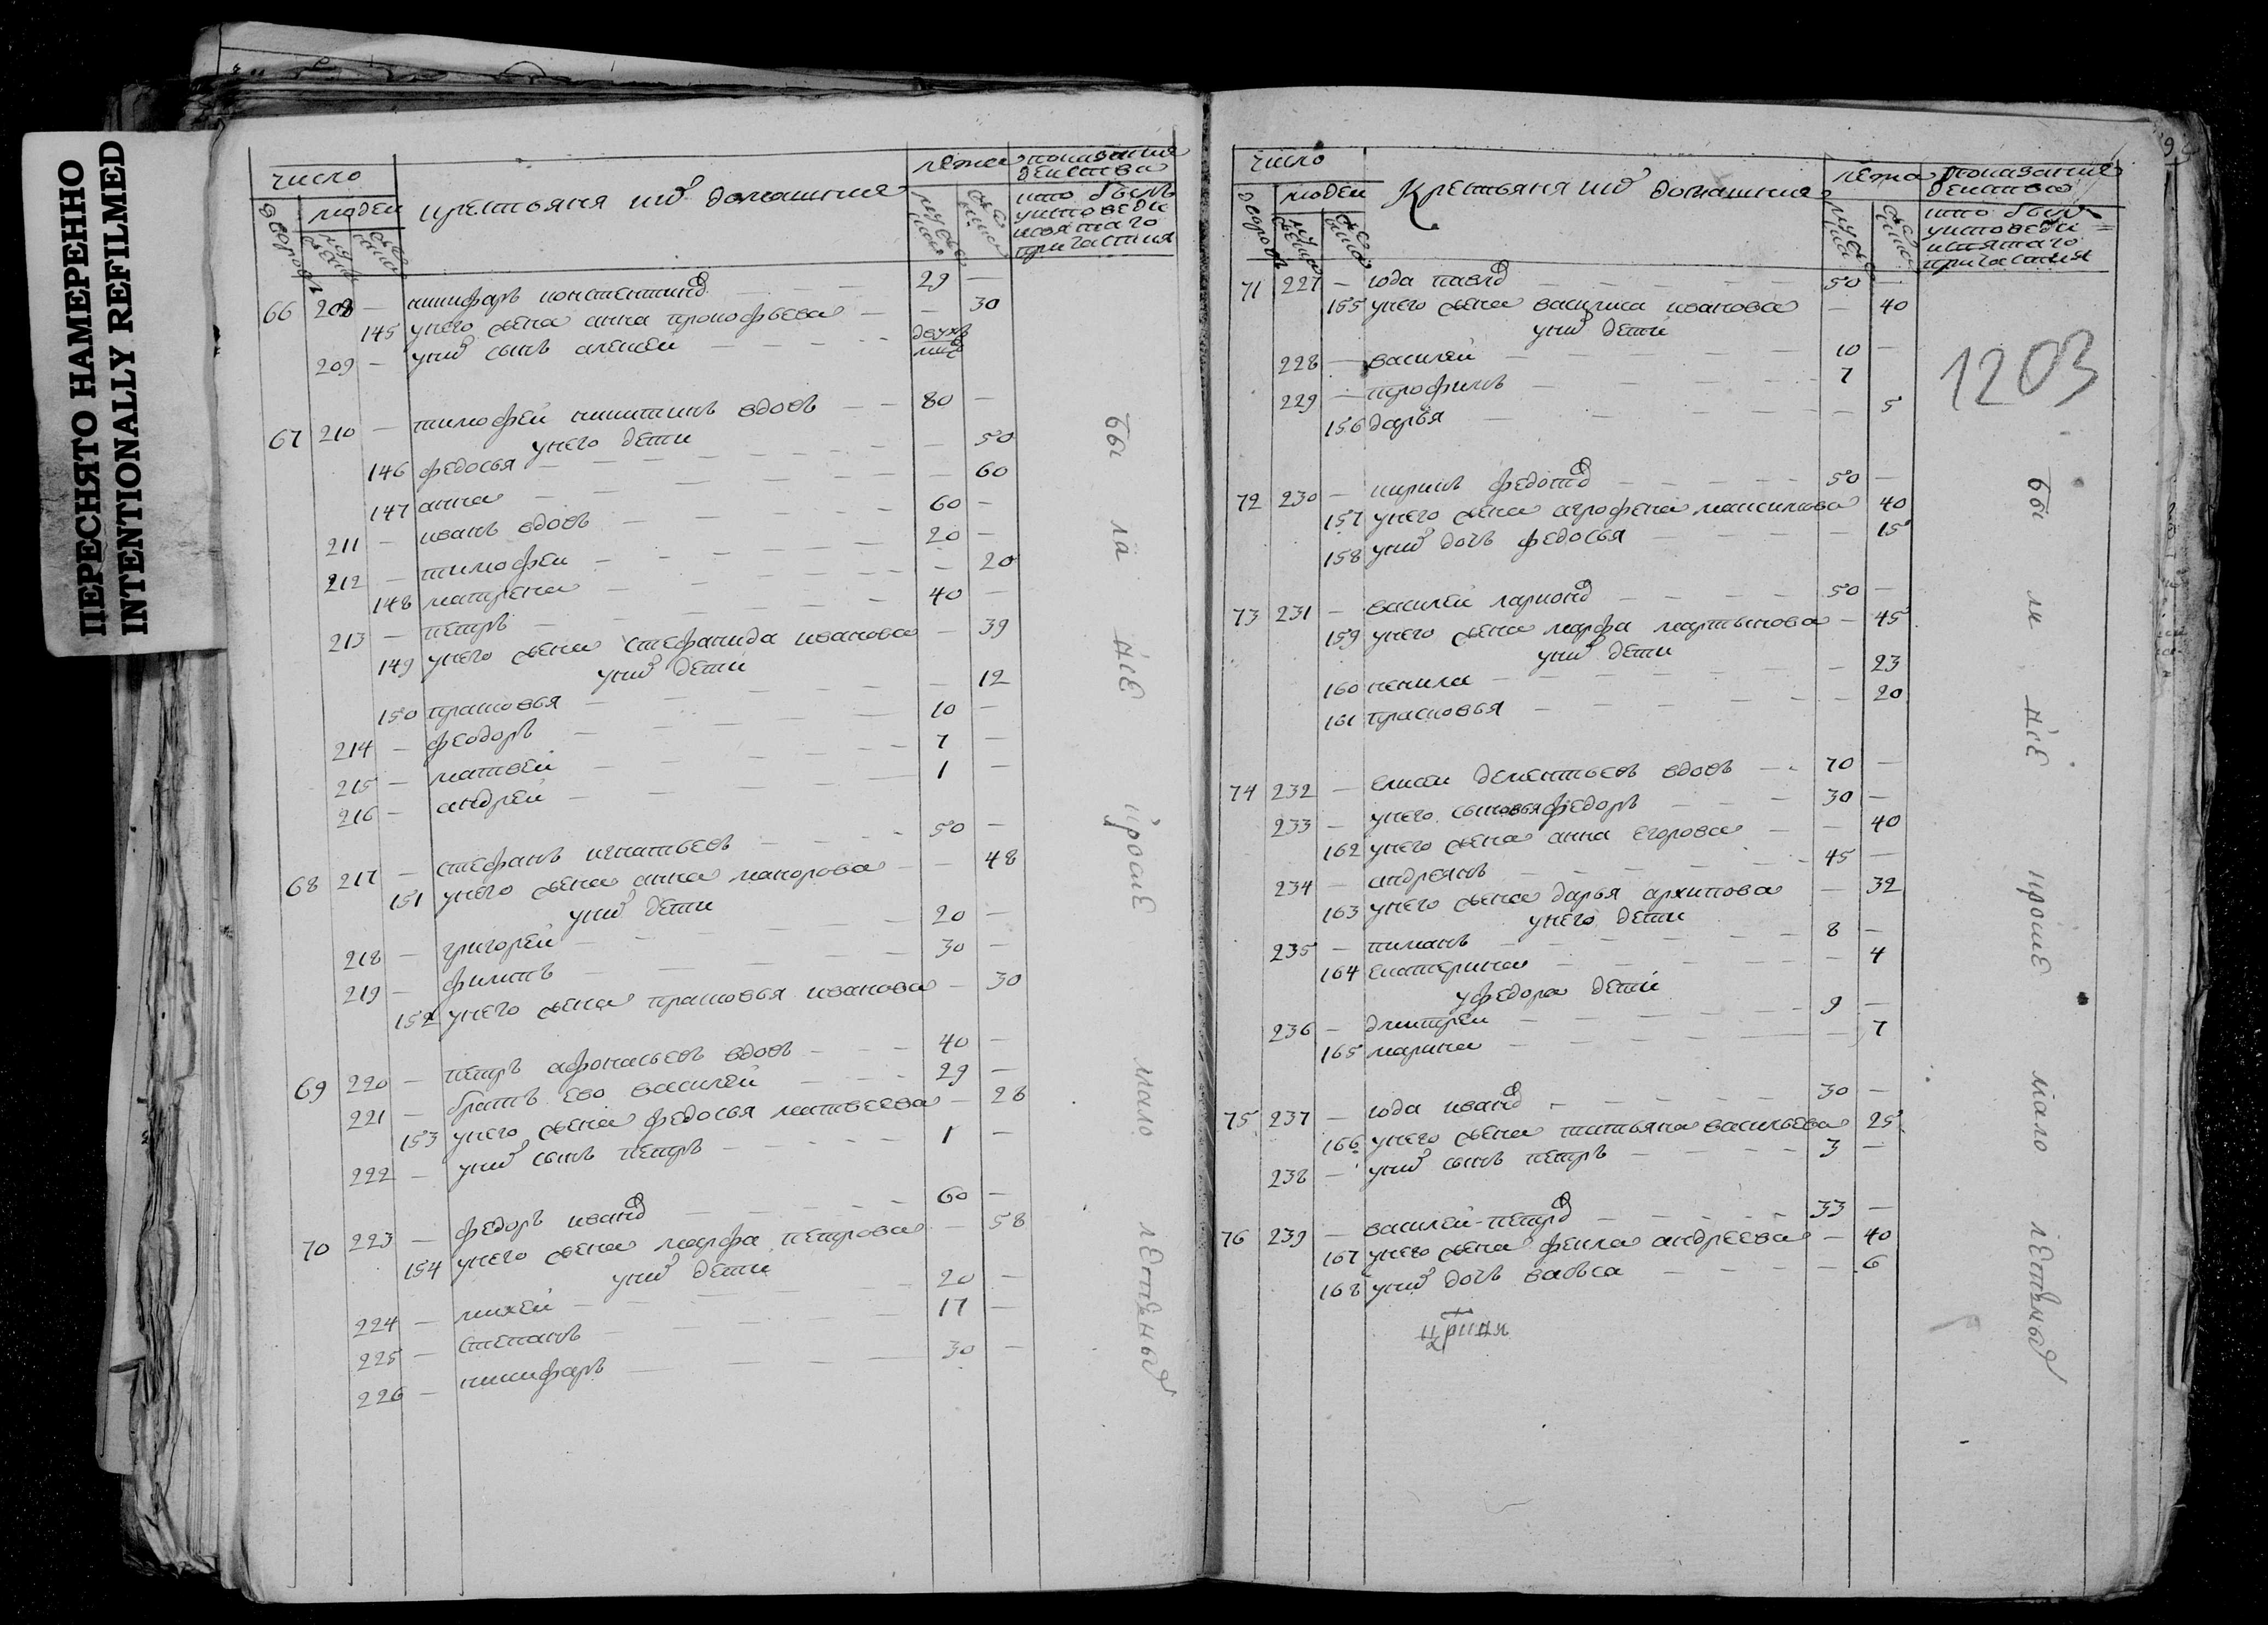 ПЕРЕСНЯТО НАМЕРЕННО
INTENTIONALLY REFILMED
число
дворовъ
людей
крестьяня ихъ домашние
лета
показание
действа
кто былъ
уисповеди
исвятаго
причастия
66 208 — никифаръ констентинов — 29 —
145 унего жена анна прокофьева — — 30
209 — унихъ сынъ алексей — двухъ
67 210 — тимофей никитинъ вдовъ — 80 —
унего дети
146 федосья — — 50
147 анна — — 60
211 — иванъ вдовъ — 60 —
212 — тимофеи — 20 —
148 матрена — — 20
213 — петръ — 40 —
149 унего жена стефанида иванова — 39
унихъ дети
150 прасковья — — 12
214 — феодоръ — 10 —
215 — матвеи — 7 —
216 — андреи — 1 —
68 217 — стефанъ игнатьевъ — 50 —
151 унего жена анна макорова — — 48
унихъ дети
218 — григореи — 20 —
219 — филипъ — 30 —
152 унего жена прасковья иванова — 30
69 220 — петръ афонасьевъ вдовъ — 40 —
221 — братъ ево василеи — 29 —
153 унего жена федосья матвеева — 28
222 — унихъ сынъ петръ — 1 —
70 223 — федоръ иванов — 60 —
154 унего жена марфа петрова — 58
унихъ дети
224 — михеи — 20 —
225 — степанъ — 17 —
226 — никифаръ — 30 —
бы ли все кроме мало летныхъ
число
дворовъ
людей
Крестьяня ихъ домашние
лета
показание
действа
кто былъ
уисповеди
исвятаго
причастия
71 227 — иода павлов — 50 —
155 унего жена василиса иванова — 40
унихъ дети
228 — василеи — 10 —
229 — трофимъ — 7
156 дарья — — 5
1203
72 230 — кирилъ федотов — 50 —
157 унего жена агрофена максимова 40
158 унихъ дочь федосья — — 15
73 231 — василеи ларионов — 50 —
159 унего жена марфа мартынова — 45
унихъ дети
160 ненила — — 23
161 прасковья — — 20
74 232 — елисеи дементьевъ вдовъ — 70 —
233 — унего сыновья федоръ — 30 —
162 унего жена анна егорова — — 40
234 — андреянъ — 45 —
163 унего жена дарья архипова — 32
унего дети
235 — пиманъ — 8 —
164 екатерина — — 4
уфедора дети
236 — дмитреи — 9 —
165 марина — — 7
75 237 — иода иванов — 30 —
166 унего жена татьяна васильева 25
238 — унихъ сынъ петръ — 3 —
76 239 — василеи петров — 33 —
167 унего жена фекла андреева — 40
168 унихъ дочь васса — — 6
бы ли все кроме мало летныхъ